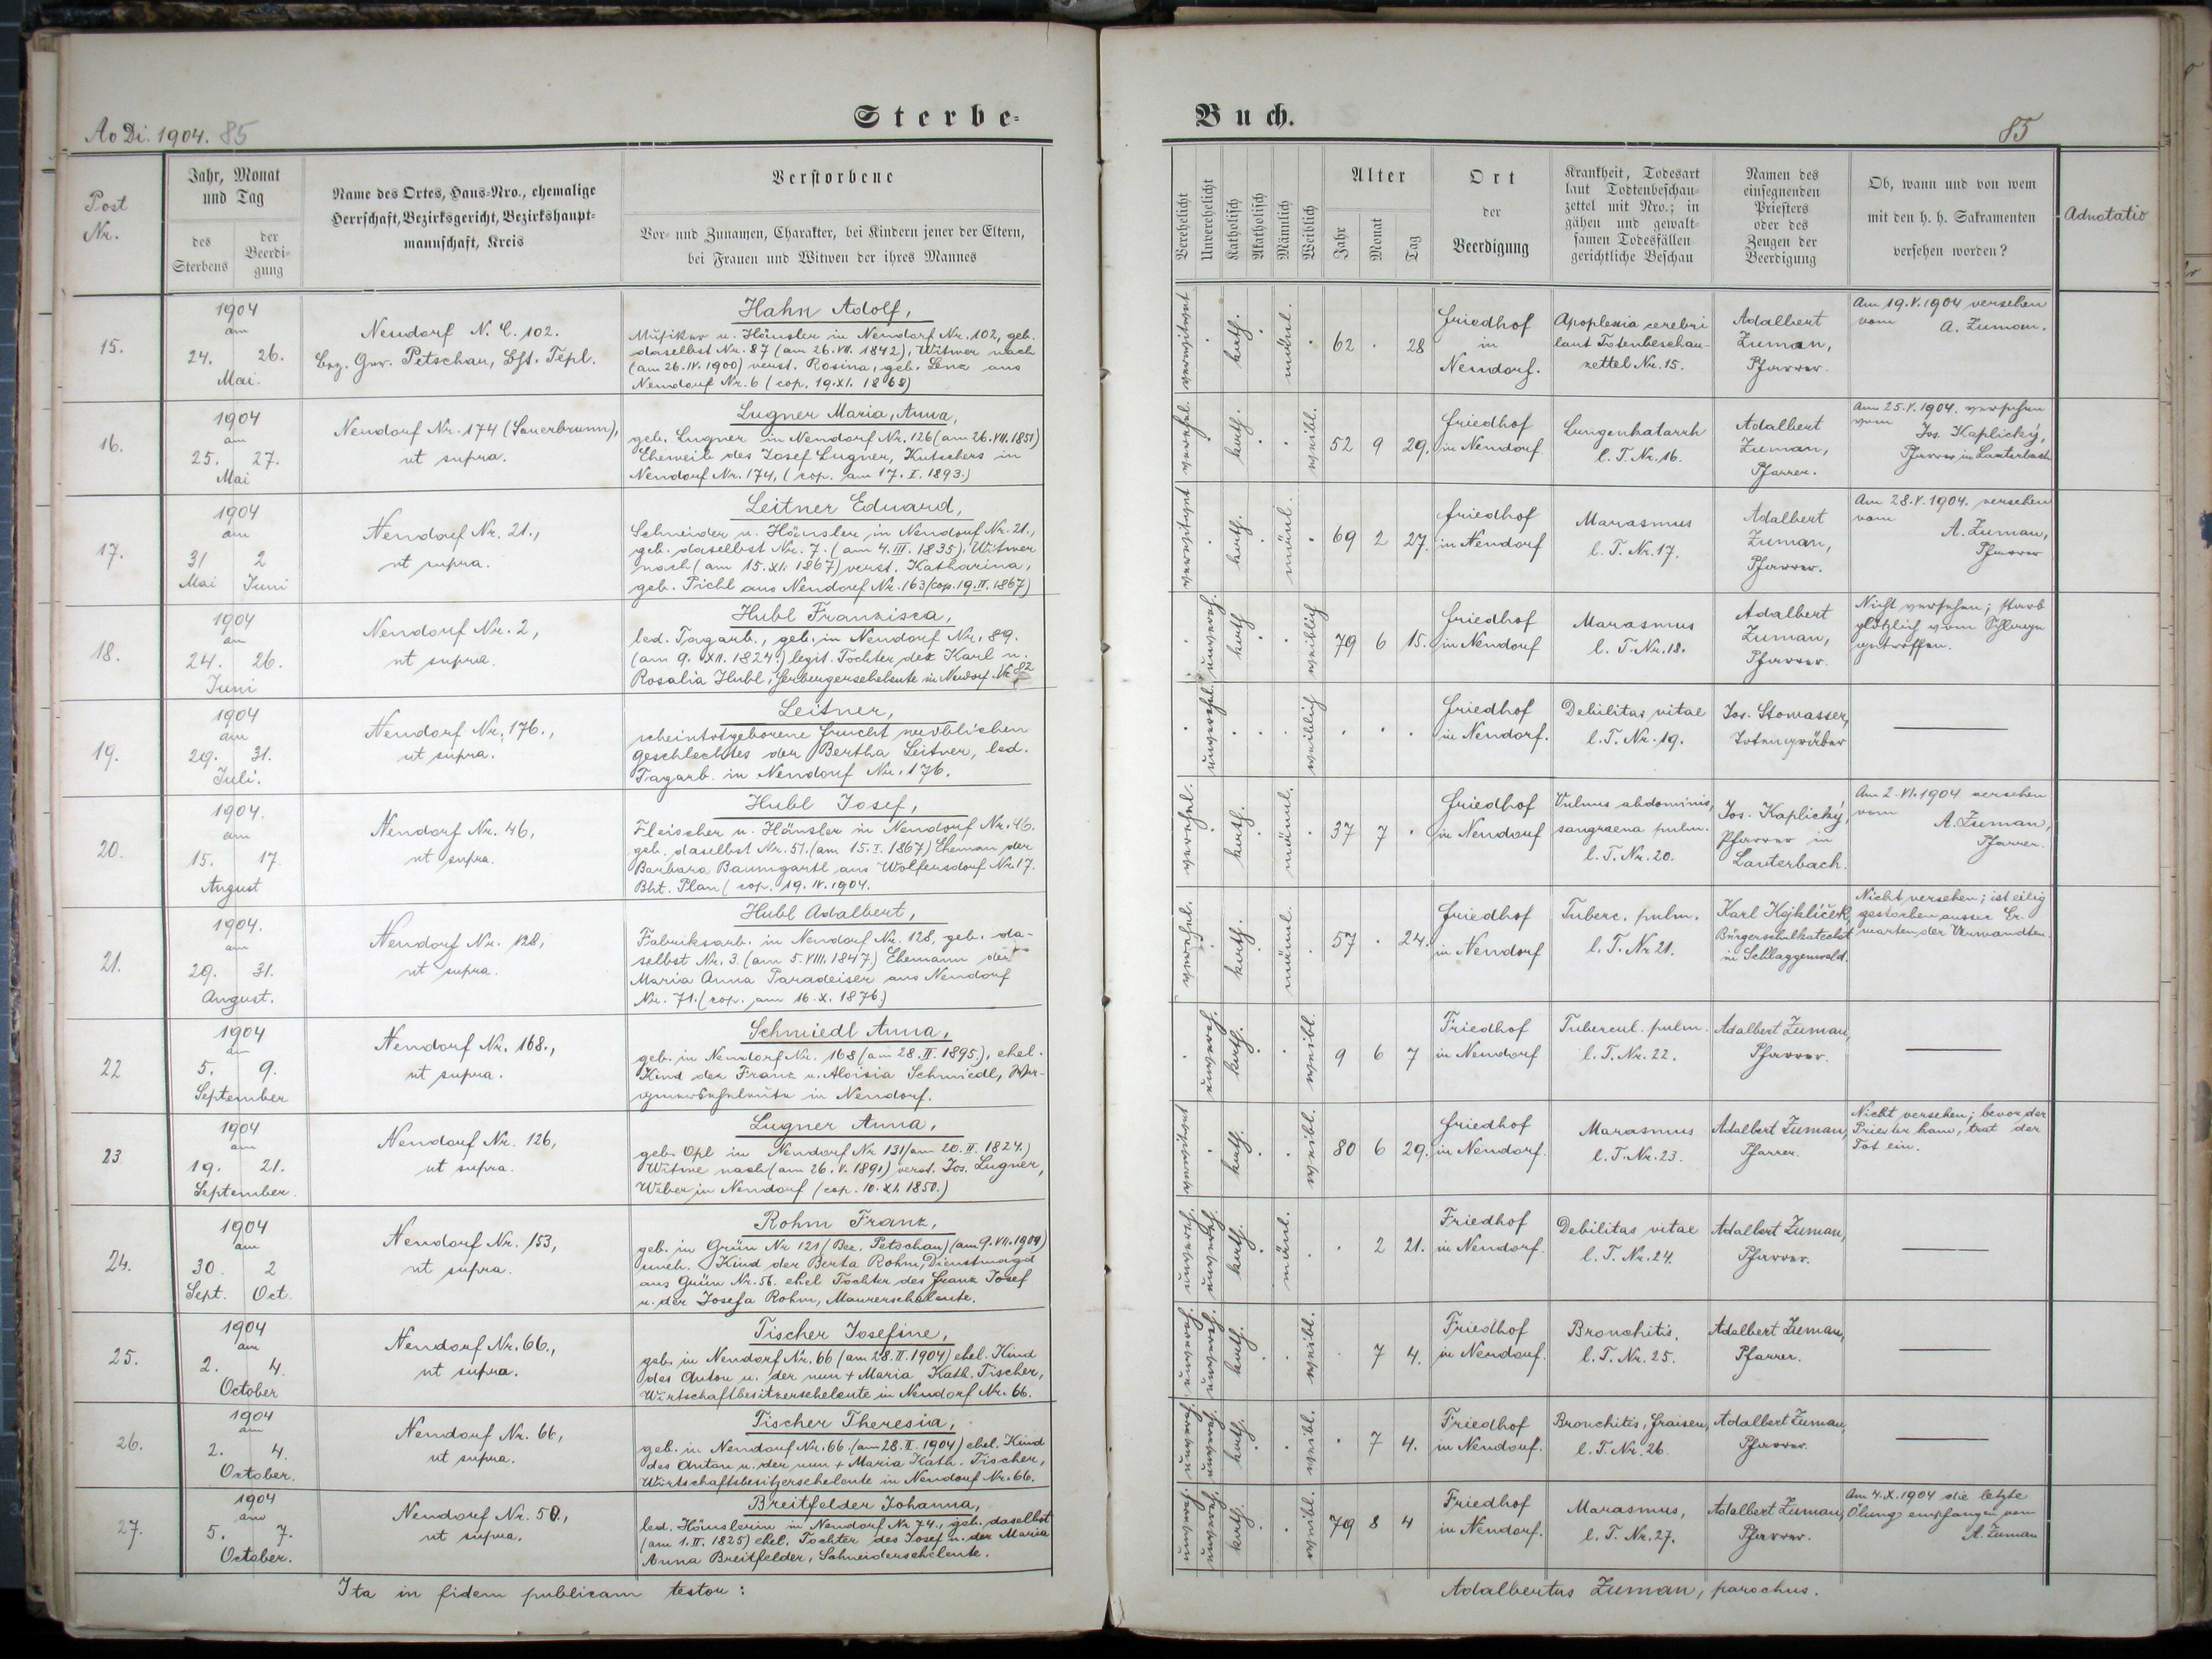 Sterbe-
Buch.
Ao Di. 1904. 85
85
Post Nr.
Jahr, Monat und Tag
des Sterbens
der Beerdigung
Name des Ortes, Haus-Nro., ehemalige
Herrschaft, Bezirksgericht, Bezirkshaupt-
mannschaft, Kreis
Verstorbene
Vor- und Zunamen, Charakter, bei Kindern jener der Eltern,
bei Frauen und Witwen der ihres Mannes
Verehelicht
Unverehelicht
Katholisch
Akatholisch
Männlich
Weiblich
Alter
Jahr
Monat
Tag
Ort
der
Beerdigung
Krankheit, Todesart
laut Todtenbeschau-
zettel mit Nro.; in
gähen und gewalt-
samen Todesfällen
gerichtliche Beschau
Namen des
einsegnenden
Priesters
oder des
Zeugen der
Beerdigung
Ob, wann und von wem
mit den h. h. Sakramenten
versehen worden?
Adnotatio
15.
1904
am
24. 26.
Mai.
Neudorf N. C. 102.
Bez. Ger. Petschau, Bh. Tepl.
Hahn Adolf,
Musiker u. Häusler in Neudorf Nr. 102, geb.
daselbst Nr. 87 (am 26. VII. 1842), Witwer nach
(am 26. IV. 1900) verst. Rosina, geb. Lenz aus
Neudorf Nr. 6 (cop. 19. XI. 1868)
verwitwet
kath.
männl.
62 . 28
Friedhof
in
Neudorf.
Apoplexia cerebri
laut Totenbeschau-
zettel Nr. 15.
Adalbert
Zuman,
Pfarrer.
Am 19. V. 1904 versehen
vom A. Zuman.
16.
1904
am
25. 27.
Mai
Neudorf Nr. 174 (Sauerbrunn),
ut supra.
Lugner Maria, Anna,
geb. Lugner in Neudorf Nr. 126 (am 26. VII. 1851)
Eheweib des Josef Lugner, Kutschers in
Neudorf Nr. 174, (cop. am 17. I. 1893.)
verehel.
kath.
weibl.
52 9 29.
Friedhof
in Neudorf
Lungenkatarrh
l. T. Nr. 16.
Adalbert
Zuman,
Pfarrer.
Am 25. V. 1904. versehen
vom Jos. Kaplický,
Pfarrer in Lauterbach
17.
1904
am
31 2
Mai Juni
Neudorf Nr. 21.,
ut supra.
Leitner Eduard,
Schneider u. Häusler in Neudorf Nr. 21.,
geb. daselbst Nr. 7. (am 4. III. 1835). Witwer
nach (am 15. XI. 1867) verst. Katharina,
geb. Pichl aus Neudorf Nr. 163 (cop. 19. II. 1867)
verwitwet
kath.
männl.
69 2 27.
Friedhof
in Neudorf
Marasmus
l. T. Nr. 17.
Adalbert
Zuman,
Pfarrer.
Am 28. V. 1904. versehen
vom A. Zuman,
Pfarrer
18.
1904
am
24. 26.
Juni
Neudorf Nr. 2,
ut supra.
Hubl Franzisca,
led. Tagarb., geb. in Neudorf Nr. 89.
(am 9. XII. 1824.) legit. Tochter des Karl u.
Rosalia Hubl, Herbergerseheleute in Neudorf Nr. 82
unvereh.
kath
weiblich
79 6 15.
Friedhof
in Neudorf
Marasmus
l. T. Nr. 18.
Adalbert
Zuman,
Pfarrer.
Nicht versehen; starb
plötzlich vom Schlage
getroffen.
19.
1904
am
29. 31.
Juli.
Neudorf Nr. 176.,
ut supra.
Leitner,
scheintotgeborene Frucht weiblichen
Geschlechtes der Bertha Leitner, led.
Tagarb. in Neudorf Nr. 176.
unverehel.
weiblich
Friedhof
in Neudorf.
Debilitas vitae
l. T. Nr. 19.
Jos. Stowasser,
Totengräber
20.
1904.
am
15. 17.
August
Neudorf Nr. 46,
ut supra.
Hubl Josef,
Fleischer u. Häusler in Neudorf Nr. 46.
geb. daselbst Nr. 51. (am 15. I. 1867) Eheman der
Barbara Baumgartl aus Wolfersdorf Nr 17.
Bht. Plan (cop. 19. IV. 1904.
verehel.
kath.
männl.
37 7 .
Friedhof
in Neudorf
Vulnus abdominis,
gangraena pulm.
l. T. Nr. 20.
Jos. Kaplický,
Pfarrer in
Lauterbach.
Am 2. VI. 1904 versehen
vom A. Zuman,
Pfarrer.
21.
1904.
am
29. 31.
August.
Neudorf Nr. 128,
ut supra.
Hubl Adalbert,
Fabriksarb. in Neudorf Nr. 128, geb. da-
selbst Nr. 3. (am 5. VIII. 1847.) Ehemann der
Maria Anna Paradeiser aus Neudorf
Nr. 71. (cop. am 16. X. 1876.)
verehel.
kath.
männl.
57 . 24.
Friedhof
in Neudorf
Tuberc. pulm.
l. T. Nr 21.
Karl Hejkliček,
Bürgerschulkatechet
in Schlaggenwald.
Nicht versehen; ist eilig
gestorben ausser Er-
warten der Verwandten.
22
1904
am
5. 9.
September
Neudorf Nr. 168.,
ut supra.
Schmiedl Anna,
geb. in Neudorf Nr. 168 (am 28. II. 1895.), ehel.
Kind der Franz u. Aloisia Schmiedl, Wag-
in Neudorf.
unvereh.
kath.
weibl.
9 6 7
Friedhof
in Neudorf
Tubercul. pulm.
l. T. Nr. 22.
Adalbert Zuman,
Pfarrer.
23
1904
am
19. 21.
September.
Neudorf Nr. 126,
ut supra.
Lugner Anna,
geb. Opl in Neudorf Nr 131 (am 20. II. 1824.)
Witwe nach (am 26. V. 1891) verst. Jos. Lugner,
Weber in Neudorf (cop. 10. XI. 1850.)
verwitwet
kath.
weibl.
80 6 29.
Friedhof
in Neudorf
Marasmus
l. T. Nr. 23.
Adalbert Zuman,
Pfarrer.
Nicht versehen; bevor der
Priester kam, trat der
Tot ein.
24.
1904
am
30. 2
Sept. Oct.
Neudorf Nr. 153,
ut supra.
Rohm Franz,
geb. in Grün Nr 121 (Bez. Petschau) (am 9. VII. 1904)
uneh. Kind der Berta Rohm, Dienstmagd
aus Grün Nr. 56. ehel Tochter des Franz Josef
u. der Josefa Rohm, Maurerseheleute.
unvereh.
unvereh.
kath.
männl.
. 2 21.
Friedhof
in Neudorf.
Debilitas vitae
l. T. Nr. 24.
Adalbert Zuman,
Pfarrer.
25.
1904
am
2. 4.
October
Neudorf Nr. 66.,
ut supra.
Tischer Josefine,
geb. in Neudorf Nr. 66 (am 28. II. 1904) ehel. Kind
des Anton u. der nun + Maria Kath. Tischer,
Wirtschaftbesitzerseheleute in Neudorf Nr. 66.
unvereh.
unvereh.
kath.
weibl.
. 7 4.
Friedhof
in Neudorf.
Bronchitis,
l. T. Nr. 25.
Adalbert Zuman,
Pfarrer.
26.
1904
am
2. 4.
October.
Neudorf Nr. 66,
ut supra.
Tischer Theresia,
geb. in Neudorf Nr. 66 (am 28. II. 1904) ehel. Kind
des Anton u. der nun + Maria Kath. Tischer,
Wirtschaftsbesitzerseheleute in Neudorf Nr. 66.
unvereh.
unvereh.
kath.
weibl.
. 7 4.
Friedhof
in Neudorf.
Bronchitis, Fraisen,
l. T. Nr. 26.
Adalbert Zuman,
Pfarrer.
27.
1904
am
5. 7.
October.
Neudorf Nr. 50.,
ut supra.
Breitfelder Johanna,
led. Häuslerin in Neudorf Nr. 74., geb. daselbst
(am 1. II. 1825) ehel. Tochter des Josef u. der Maria
Anna Breitfelder, Schneiderseheleute.
unvereh.
unvereh.
kath.
weibl.
79 8 4
Friedhof
in Neudorf.
Marasmus,
l. T. Nr. 27.
Adalbert Zuman,
Pfarrer.
Am 4. X. 1904 die letzte
Ölung empfangen von
A. Zuman
Ita in fidem publicam testor:
Adalbertus Zuman, parochus.